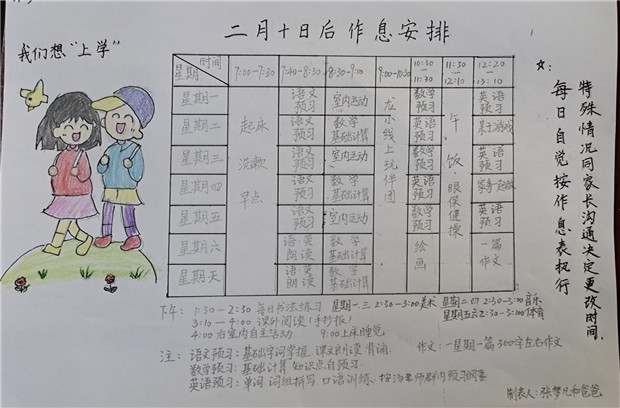 二月十日后作息安排
我们想“上学”
时间
星期
7:00-7:30
7:40-8:30
8:30-9:00
9:00-10:30
10:30-11:30
11:30-12:10
12:20-13:10
星期一
语文预习
室内运动
数学预习
英语预习
星期二
起床
语文预习
数学基础计算
英语预习
星期三
洗漱
语文预习
室内运动
数学预习
英语预习
星期四
早点
语文预习
数学基础计算
英语预习
星期五
语文预习
室内运动
数学预习
英语预习
星期六
语·英朗读
数学基础计算
绘画
一篇作文
星期天
语·英朗读
数学基础计算
龙小线上玩伴团
午饭·眼保健操
☆:
特殊情况同家长沟通决定更改时间.
每日自觉按作息表执行
下午: 1:30-2:30 每日书法练习 星期一三 2:30-3:00美术 星期二四 2:30-3:00音乐
星期五六 2:30-3:00体育
3:10-4:00 课外阅读(手抄报)
4:00后室内自主活动 9:00上床睡觉
注: 语文预习: 基础字词掌握, 课文朗读 背诵. 作文: 一星期一篇300字左右作文
数学预习: 基础计算 知识点自预习
英语预习: 单词 词组拼写. 口语训练.
制表人: 张梦凡和爸爸